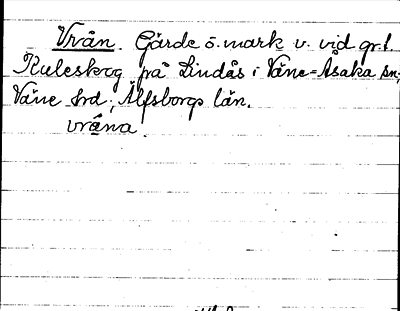 Vrån. Gärde ö. mark v. vid gr.t.
Kuleskog på Lindås i Väne-Åsaka sn,
Väne hrd, Älfsborgs län.
vråna